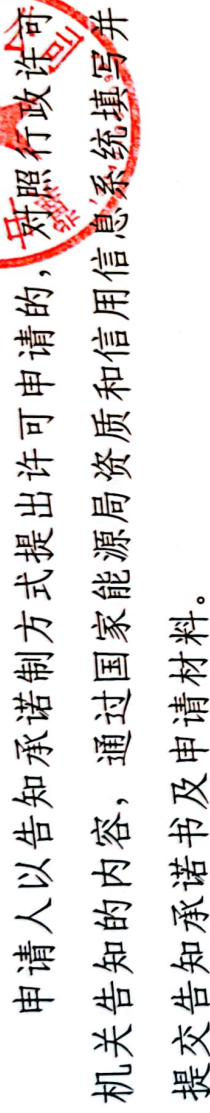 申请人以告知承诺制方式提出许可申请的，对照行政许可
机关告知的内容，通过国家能源局资质和信用信息系统填写并
提交告知承诺书及申请材料。